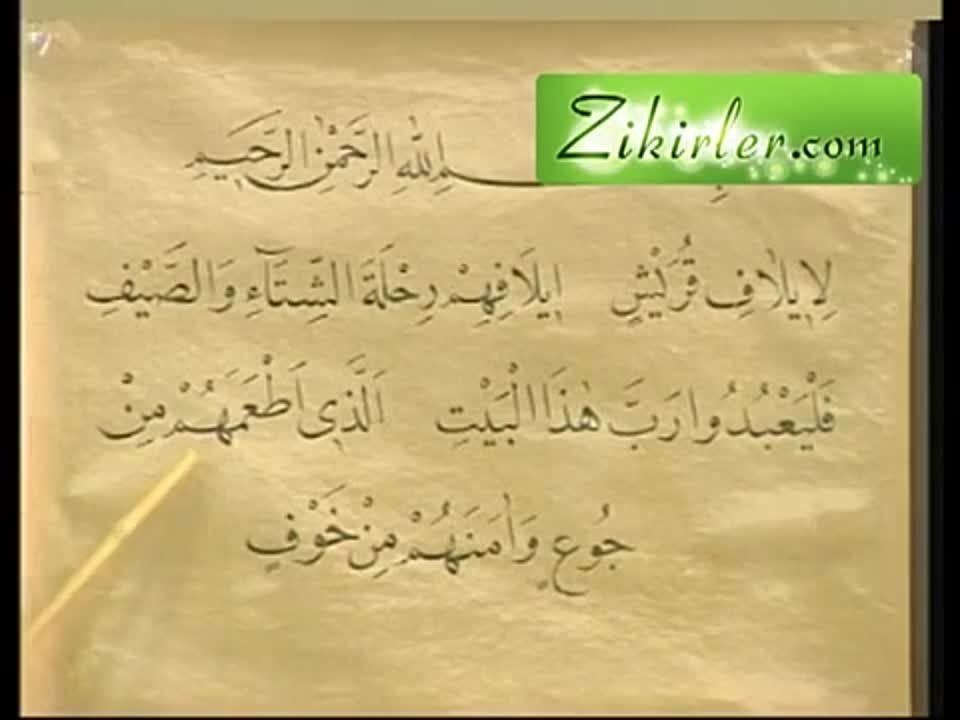 Zikirler.com
بِسْمِ اللّٰهِ الرَّحْمٰنِ الرَّحِيمِ
لِاِيلَافِ قُرَيْشٍ اِيلَافِهِمْ رِحْلَةَ الشِّتَٓاءِ وَالصَّيْفِ
فَلْيَعْبُدُوا رَبَّ هٰذَا الْبَيْتِ اَلَّذِٓى اَطْعَمَهُمْ مِنْ
جُوعٍ وَاٰمَنَهُمْ مِنْ خَوْفٍ